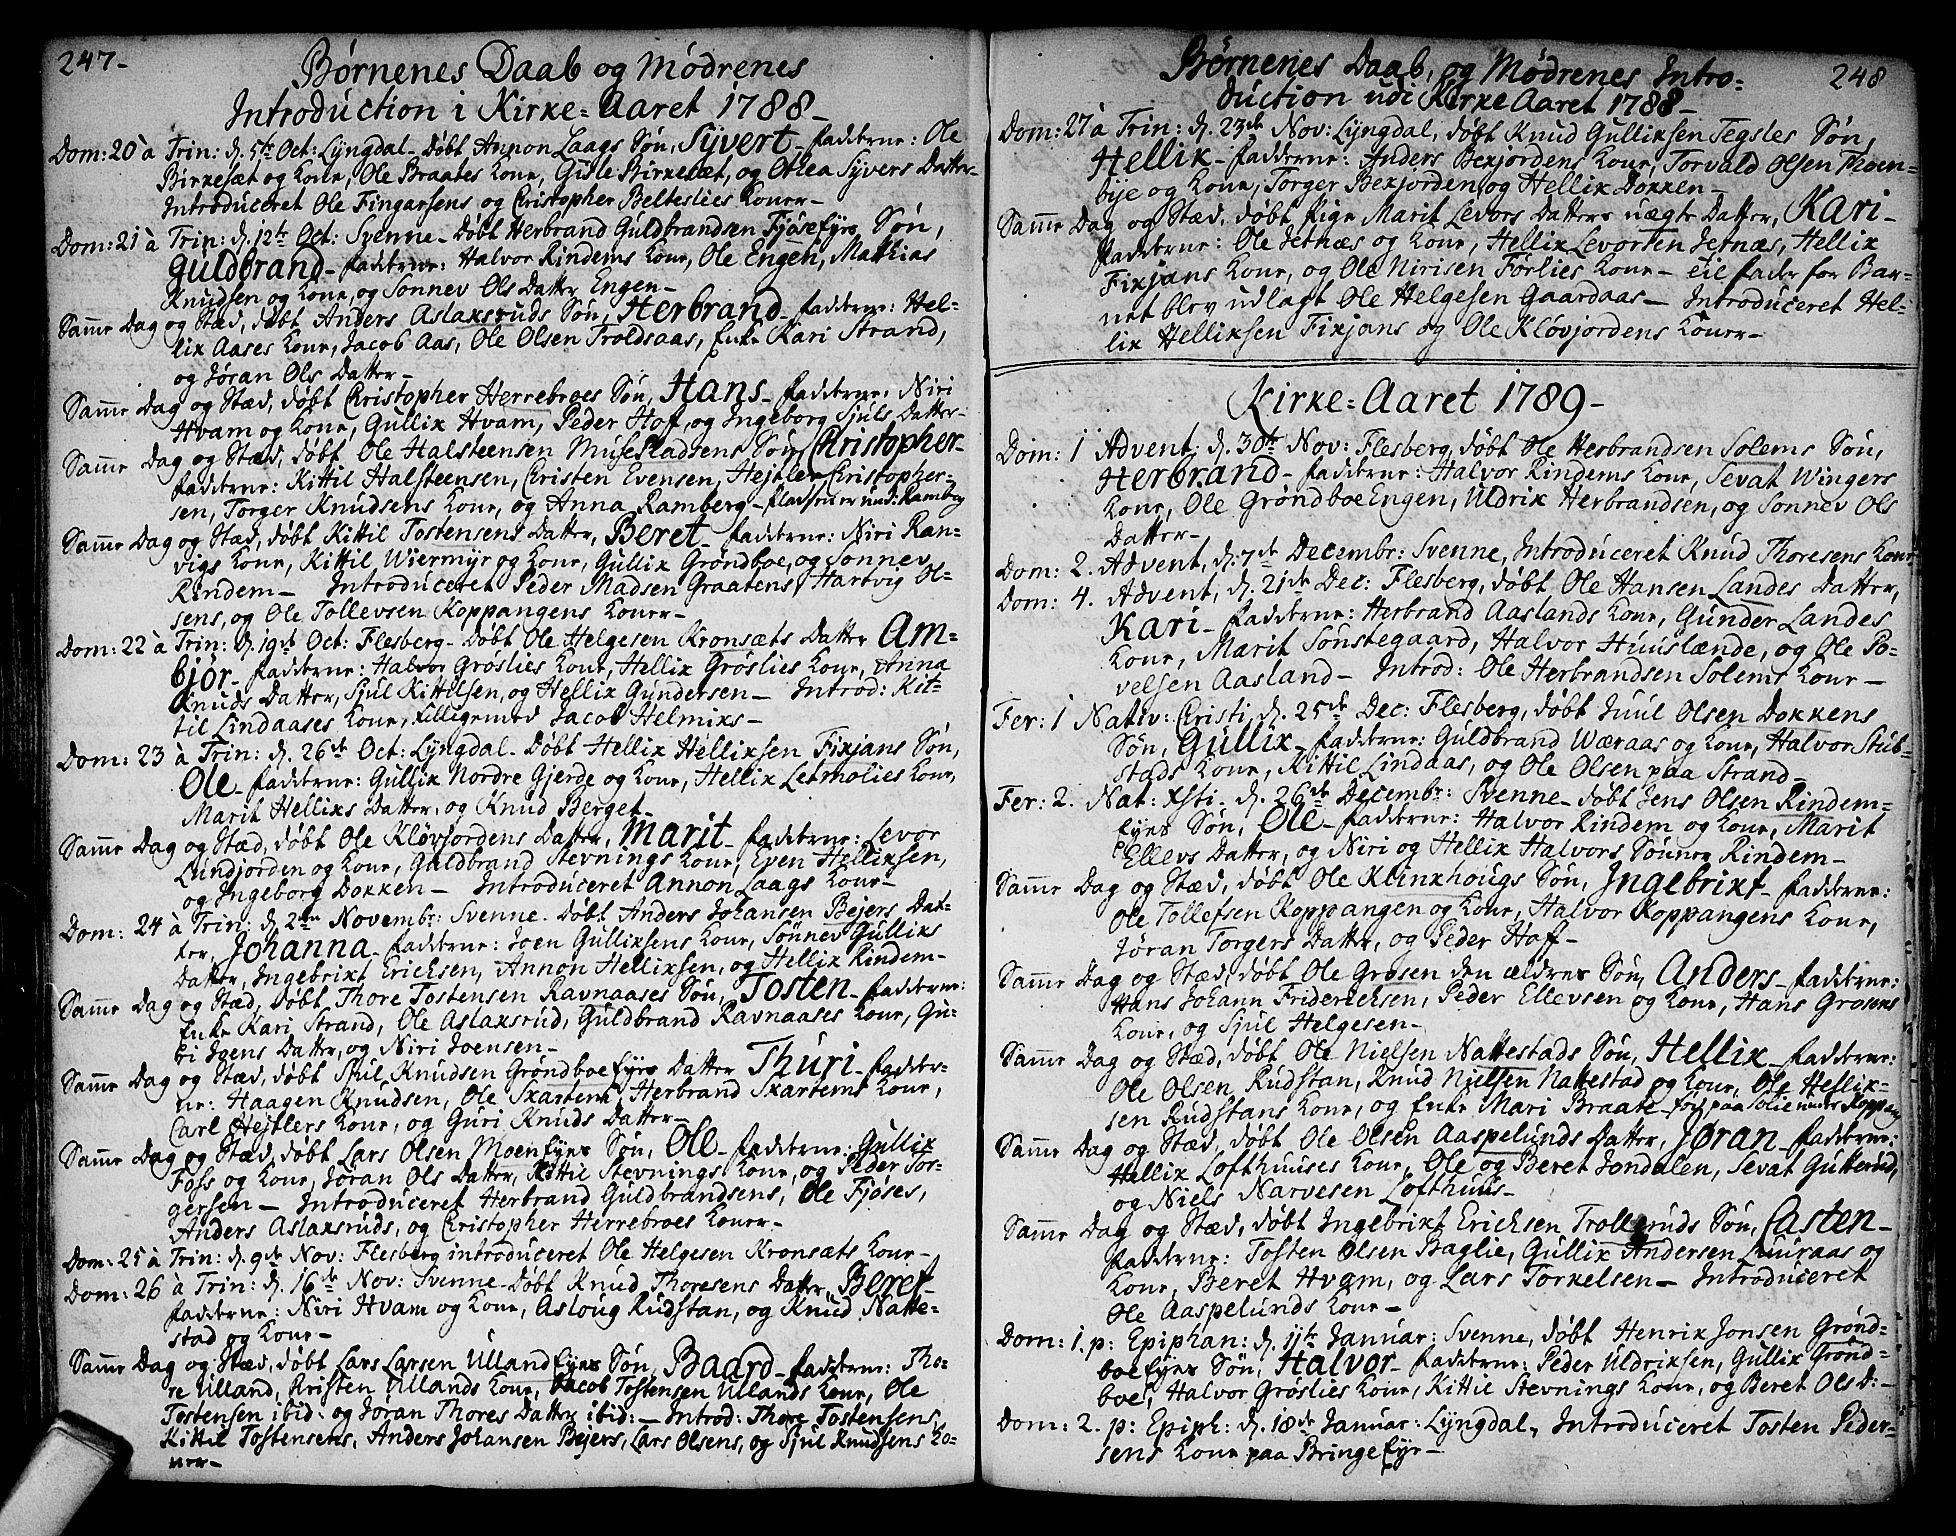 247-
Børnenes Daab og Mødrenes
Introduction i Kirke-Aaret 1788-
Dom: 20 à Trin: d. 5te Oct: Lyngdal- døbt Annon Laags Søn, Syvert- fadderne: Ole
Birkesæt og Kone, Ole Braates Kone, Gisle Birkesæt, og Othea Syvers Datter-
Introduceret Ole Fingarsens og Christopher Belteslies Koner-
Dom: 21 à Trin: d. 12te Oct: Svenne- Døbt Herbrand Guldbrandsen Fjøseeyes Søn,
Guldbrand- fadderne: Halvor Rindems Kone, Ole Engen, Mathias
Knudsen og Kone, og Sonnev Ols Datter Engen-
Samme Dag og Stæd, døbt Anders Aslaksruds Søn, Herbrand- fadderne: Hel-
lix Aases Kone, Jacob Aas, Ole Olsen Troldsaas, Enke Kari Strand,
og Jøran Ols Datter-
Samme Dag og Stæd, døbt Christopher Herrebroes Søn, Hans- fadderne: Niri
Hvam og Kone, Gullix Hvam, Peder Hoff, og Ingeborg Sjuls Datter-
Samme Dag og Stæd, døbt Ole Halsteensen Musestadtens Søn, Christopher-
fadderne: Kittil Halsteensen, Christen Evensen, Hejtler Christopher-
sen, Torger Knudsens Kone, og Anna Ramberg- Pladsen er und: Ramberg
Samme Dag og Stæd, døbt Kittil Tostensens Datter, Beret- fadderne: Niri Ran-
vigs Kone, Kittil Wiermyr og Kone, Gullix Grøndboe, og Sonnev
Rindem- Introduceret Peder Madsen Graatens, Hartvig Ol-
sens, og Ole Tollevsen Koppangens Koner-
Dom: 22 à Trin: d. 19de Oct: Flesberg- Døbt Ole Helgesen Kronsæts Datter Am-
bjør- fadderne: Halvor Grøslies Kone, Hellix Grøslies Kone, Anna
Knuds Datter, Sjul Kittelsen, og Hellix Gundersen- Introd: Kit-
til Lindaases Kone, tilligemed Jacob Helmiks-
Dom: 23 à Trin: d. 26de Oct: Lyngdal- Døbt Hellix Hellixsen Fixjans Søn,
Ole- fadderne: Gullix Nordre Gjerde og Kone, Hellix Letmolies Kone,
Marit Hellixs Datter, og Knud Berget-
Samme Dag og Stæd, døbt Ole Kløvjordens Datter, Marit- fadderne: Levor
Lundjorden og Kone, Guldbrand Stevnings Kone, Even Hellixsen,
og Ingeborg Dokken- Introduceret Annon Laags Kone-
Dom: 24 à Trin: d. 2den Novembr: Svenne- døbt Anders Johansen Bejers Dat-
ter, Johanna- fadderne: Joen Gullixsens Kone, Sønnev Gullixs
Datter, Ingebrixt Erichsen, Annon Hellixsen, og Hellix Rindem-
Samme Dag og Stæd, døbt Thore Tostensen Ravnaases Søn, Tosten- fadderne:
Enke Kari Strand, Ole Aslaxsrud, Guldbrand Ravnaases Kone, Gu-
ri Joens Datter, og Niri Joensen-
Samme Dag og Stæd, døbt Sjul Knudsen Grøndboeeyes Datter Thuri- fadder-
ne: Haagen Knudsen, Ole Skartem, Herbrand Skartems Kone,
Carl Hejtlers Kone, og Guri Knuds Datter-
Samme Dag og Stæd, døbt Lars Olsen Moeneyes Søn, Ole- fadderne: Gullix
Foss og Kone, Jøran Ols Datter, Kittil Stevnings Kone, og Peder Tor-
gersen- Introduceret Herbrand Guldbrandsens, Ole Fjøses,
Anders Aslaxsruds, og Christopher Herrebroes Koner-
Dom: 25 à Trin: d. 9de Nov: Flesberg introduceret Ole Helgesen Kronsæts Kone-
Dom: 26 à Trin: d. 16de Nov: Svenne- Døbt Knud Thoresens Datter, Beret-
fadderne: Niri Hvam og Kone, Asloug Rudstan, og Knud Natte-
stad og Kone-
Samme Dag og Stæd, døbt Lars Larsen Ullandeyes Søn, Baard- fadderne: Tho-
re Ulland, Kristen Ullands Kone, Jacob Tostensen Ullands Kone, Ole
Tostensen ibid: og Joran Thores Datter ibid:- Introd: Thore Tostensens,
Kittil Tostensens, Anders Johansen Bejers, Lars Olsens, og Sjul Knudsens Ko-
ner-
Børnenes Daab, og Mødrenes Intro-
248
duction udi Kirke Aaret 1788-
Dom: 27 à Trin: d. 23de Nov: Lyngdal, døbt Knud Gullixsen Tegsles Søn,
Hellix- fadderne: Anders Bexjordens Kone, Torvald Olsen Thoen-
bye og Kone, Torger Bexjorden, og Hellix Dokken-
Samme Dag og Stæd, døbt Pige Marit Levors Datters uægte Datter, Kari-
fadderne: Ole Jetnæs og Kone, Hellix Levorsen Jetnæs, Hellix
Fixjans Kone, og Ole Nirisen Førlies Kone- til fader for Bar-
net blev udlagt Ole Helgesen Gaardaas- Introduceret Hel-
lix Hellixsen Fixjans og Ole Kløvjordens Koner-
Kirke-Aaret 1789-
Dom: 1 Advent, d. 30te Nov: Flesberg, døbt Ole Herbrandsen Solems Søn,
Herbrand- fadderne: Halvor Rindems Kone, Sevat Wingers
Kone, Ole Grøndboe Engen, Uldrik Herbrandsen, og Sonnev Ols
Datter-
Dom: 2. Advent, d. 7de Decembr: Svenne, Introduceret Knud Thoresens Kone-
Dom: 4. Advent, d. 21de Dec: Flesberg, døbt Ole Hansen Landes Datter,
Kari- fadderne: Herbrand Aaslands Kone, Gunder Landes
Kone, Marit Sønstegaard, Halvor Huuslænde, og Ole Po-
velsen Aasland- Introd: Ole Herbrandsen Solems Kone-
Fer: 1 Nativ: Christi, d. 25de Dec: Flesberg, døbt Juul Olsen Dokkens
Søn, Gullix- fadderne: Guldbrand Wæraas og Kone, Halvor Stub-
stads Kone, Kittil Lindaas, og Ole Olsen paa Strand-
Fer: 2. Nat: xsti- d. 26de Decembr: Svenne- døbt Jens Olsen Rindem-
eyes Søn, Ole- fadderne: Halvor Rindem og Kone, Marit
Ellevs Datter, og Niri og Hellix Halvors Sønner Rindem-
Samme Dag og Stæd, døbt Ole Klinkhougs Søn, Ingebrixt- fadderne:
Ole Tollefsen Koppangen og Kone, Halvor Koppangens Kone,
Jøran Torgers Datter, og Peder Hoff-
Samme Dag og Stæd, døbt Ole Grosen den ældres Søn, Anders- fadderne:
Hans Johann Friderichsen, Peder Ellevsen og Kone, Hans Grosens
Kone, og Sjul Helgesen-
Samme Dag og Stæd, døbt Ole Nielsen Nattestads Søn, Hellix- fadderne:
Ole Olsen Rudstan, Knud Nielsen Nattestad og Kone, Ole Hellix-
sen Rudstans Kone, og Enke Mari Braate- paa Solie under Koppang
Samme Dag og Stæd, døbt Ole Olsen Aaspelunds Datter, Jøran- fadderne:
Hellix Lofthuuses Kone, Ole og Beret Jondalen, Sevat Gutterud,
og Niels Narvesen Lofthuus-
Samme Dag og Stæd, døbt Ingebrixt Erichsen Trolleruds Søn, Casten-
fadderne: Tosten Olsen Baglie, Gullix Andersen Luuraas og
Kone, Beret Hvam, og Lars Torkelsen- Introduceret
Ole Aaspelunds Kone-
Dom: 1. p: Epiphan: d. 11te Januar: Svenne, døbt Henrix Jonsen Grønd-
boeeyes Søn, Halvor- fadderne: Peder Uldrixsen, Gullix Grønd-
boe, Halvor Grøslies Kone, Kittil Stevnings Kone, og Beret Ols D:-
Dom: 2. p: Epiph: d. 18de Januar: Lyngdal, Introduceret Tosten Peder-
sens Kone paa Bringeeye-